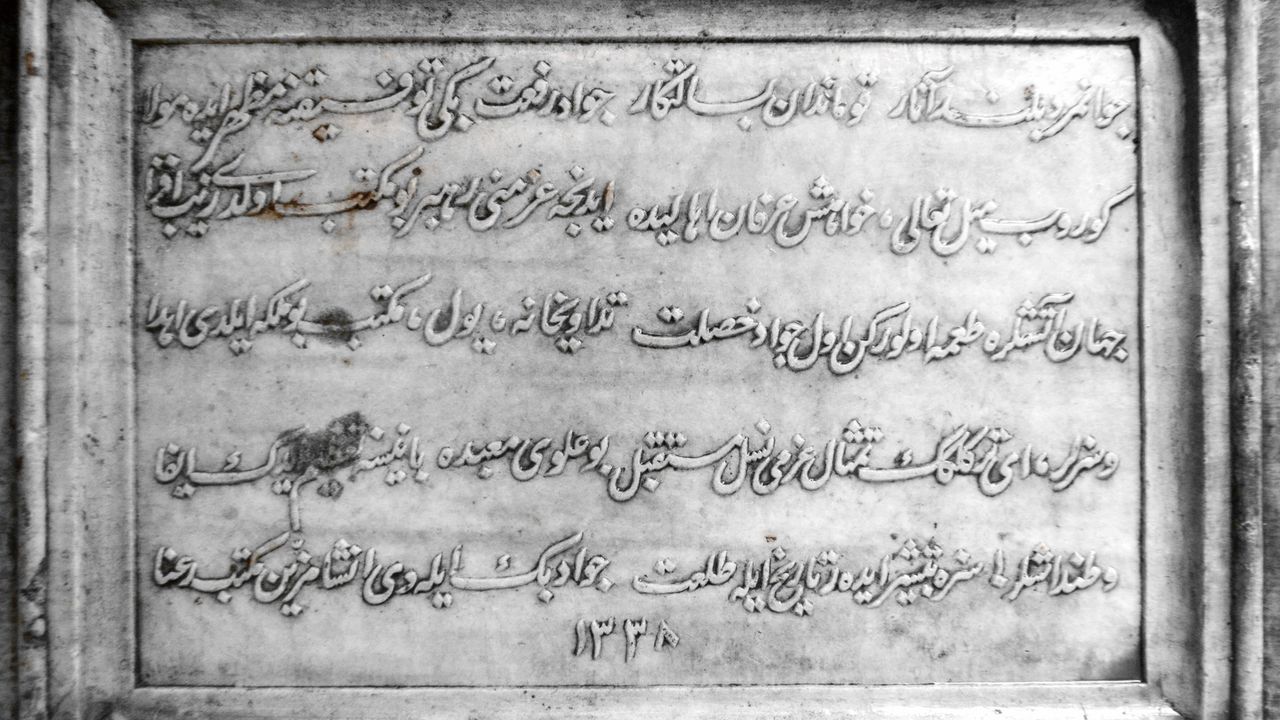 جوانمرد بلند آثار توماندان بسالتكار جواد رفعت بكی توفیقنه مظهر ایده مولا
كوروب میل تعالی، خواهش عرفان اهالیده ایدنجه عزمنی رهبر بو مكتب اولدی زینب افزا
جهان آتشلره طعمه اولوركن اول جواد خصلت تداویخانه، یول، مكتب بو ملكه ایلدی اهدا
وسزلر، ای تركلك تمثال عزمی نسل مستقبل بو علوی معبده با
وطنداشلر سزه تبشیر ایده ر تاریخ ایله طلعت جواد بك ایله دی انشا مزین مكتب رعنا
١٣٣٨